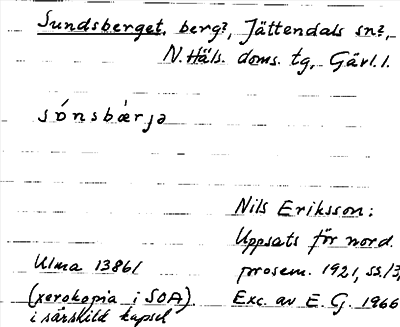 Sundsberget, berg?, Jättendals sn?,
N. Häls. doms. tg, Gävl. l.
sónsbàrjə
Nils Eriksson:
Uppsats för nord.
Ulma 13861
prosem. 1921, ss. 13,
(xerokopia i SOA).
Exc. av E. G. 1966
i särskild kapsel